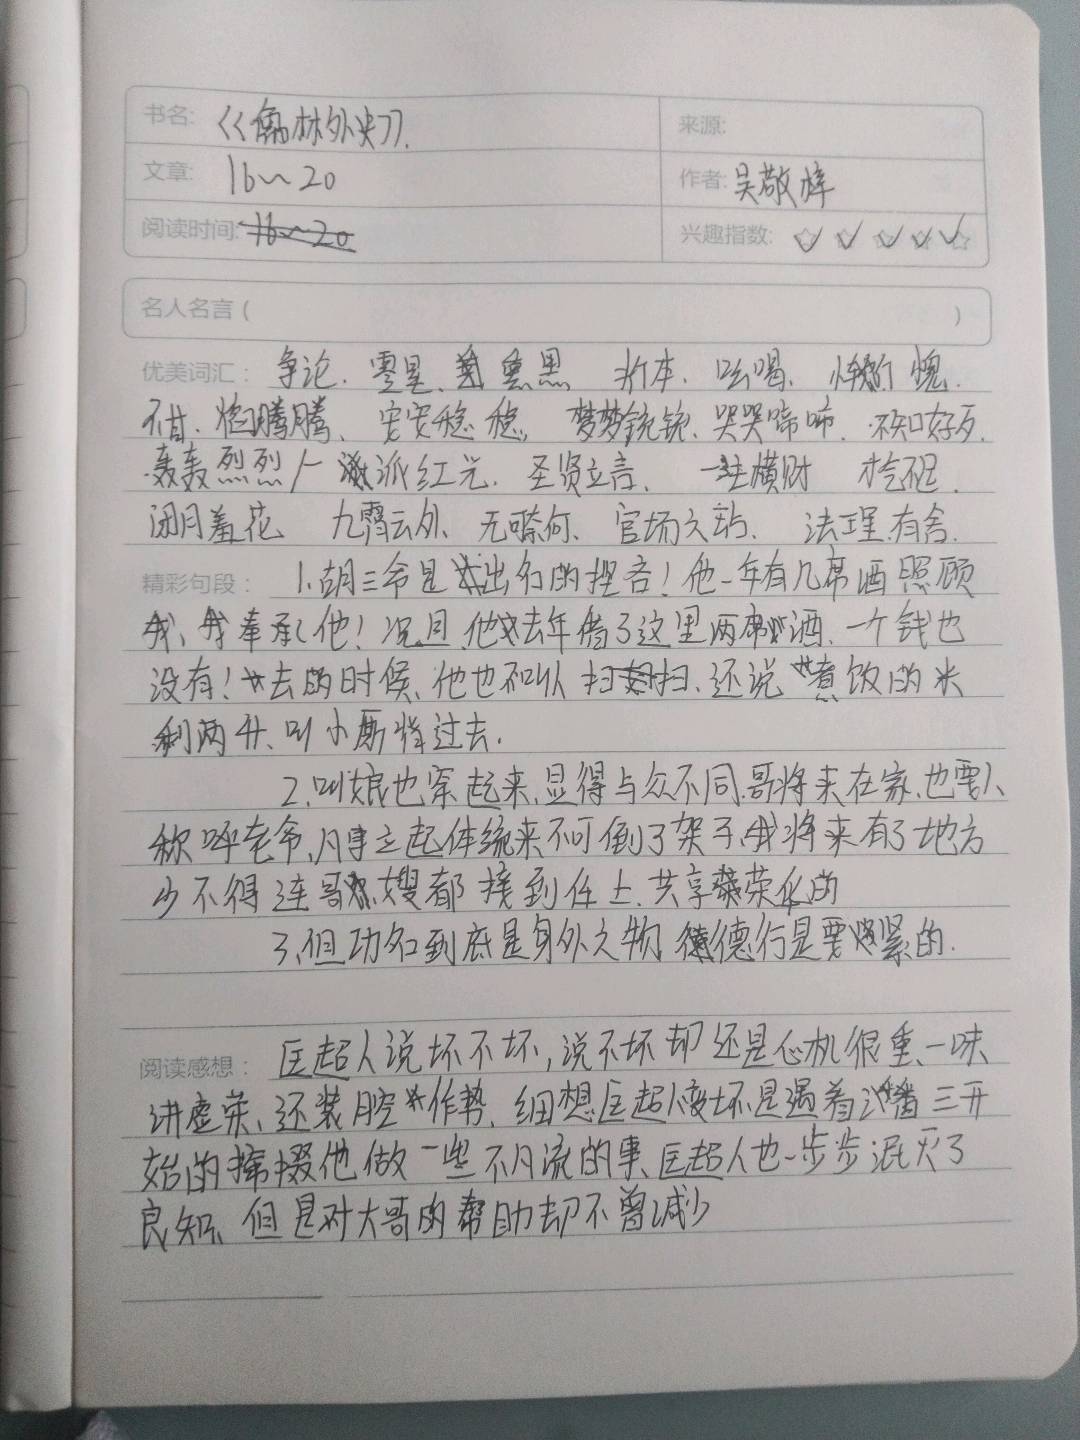 书名: 《儒林外史》.
来源:
文章: 16~20
作者: 吴敬梓
阅读时间: 16~20
兴趣指数:
名人名言 ( )
优美词汇: 争论. 零星. 熏黑 折本. 吆喝. 惭愧.
不甘. 腾腾、安安稳稳, 梦梦铳铳. 哭哭啼啼. 不知好歹.
轰轰烈烈 一派红光. 圣贤立言、 一注横财
闭月羞花 九霄云外、无可奈何、官场 法理有舍.
精彩句段: 1.胡三爷是出名的悭吝! 他一年有几席酒照顾
我、我奉承他! 况且他去年借了这里两席酒、一个钱也
没有! 去的时候、他也不叫人扫扫、还说煮饭的米
剩两升、叫小厮背过去.
2.叫娘也穿起来、显得与众不同.哥将来在家、也要人
称呼老爷、凡事立起体统来不可倒了架子、我将来有了地方
少不得连哥嫂都接到任上.共享荣华的
3、但功名到底是身外之物 德行是要紧的.
阅读感想: 匡超人说坏不坏,说不坏却还是心机很重、一味
讲虚荣、还装腔作势. 细想匡超人变坏是遇着潘三开
始的撺掇他做一些不入流的事、匡超人也一步步泯灭了
良知、但是对大哥的帮助却不曾减少